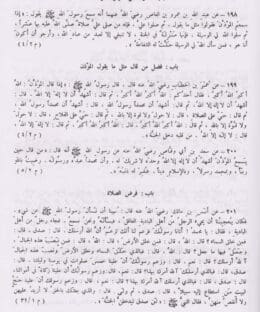 ١٩٨ – عن عبد الله بن عمرو بن العاص رضي الله عنهما أنه سمع رسول الله ﷺ يقول : « إذا
سمعتم المؤذن فقولوا مثل ما يقول ، ثم صلوا علي فإنه من صلى علي صلاة صلى الله عليه بها عشراً ،
ثم سلوا الله لي الوسيلة ، فإنها منزلة في الجنة لا تنبغي إلا لعبد من عباد الله ، وأرجو أن أكون
أنا هو ، فمن سأل الله لي الوسيلة حلت له الشفاعة » . ( م ٤/٢ )
باب : فضل من قال مثل ما يقول المؤذن
١٩٩ – عن عمر بن الخطاب رضي الله عنه قال : قال رسول الله ﷺ : « إذا قال المؤذن : الله
أكبر الله أكبر ، فقال أحدكم : الله أكبر الله أكبر ، ثم قال : أشهد أن لا إله إلا الله ، قال :
أشهد أن لا إله إلا الله ، ثم قال : أشهد أن محمداً رسول الله ، قال : أشهد أن محمداً رسول الله ،
ثم قال : حي على الصلاة ، قال : لا حول ولا قوة إلا بالله ، ثم قال : حي على الفلاح ، قال :
لا حول ولا قوة إلا بالله ، ثم قال : الله أكبر الله أكبر ، قال : الله أكبر الله أكبر ، ثم قال :
لا إله إلا الله ، قال : لا إله إلا الله من قلبه دخل الجنة » . ( م ٤/٢ )
٢٠٠ – عن سعد بن أبي وقاص رضي الله عنه عن رسول الله ﷺ أنه قال : « من قال حين
يسمع المؤذن : أشهد أن لا إله إلا الله وحده لا شريك له ، وأن محمداً عبده ورسوله ، رضيت بالله
رباً ، وبمحمد رسولاً ، وبالإسلام ديناً ، غفر له ذنبه » . ( م ٥/٢ )
باب : فرض الصلاة
٢٠١ – عن أنس بن مالك رضي الله عنه قال : نهينا أن نسأل رسول الله ﷺ عن شيء ،
فكان يعجبنا أن يجيء الرجل من أهل البادية العاقل ، فيسأله ونحن نسمع ، فجاء رجل من أهل
البادية ، فقال : يا محمد ! أتانا رسولك فزعم لنا أنك تزعم أن الله أرسلك ، قال : صدق ، قال :
فمن خلق السماء ؟ قال : الله ، قال : فمن خلق الأرض ؟ قال : الله ، قال : فمن نصب هذه الجبال ،
وجعل فيها ما جعل ؟ قال : الله ، قال : فبالذي خلق السماء وخلق الأرض ونصب هذه الجبال ،
آلله أرسلك ؟ قال : نعم ، قال : وزعم رسولك أن علينا خمس صلوات في يومنا وليلتنا ، قال :
صدق ، قال : فبالذي أرسلك آلله أمرك بهذا ؟ قال : نعم ، قال : وزعم رسولك أن علينا زكاة في أموالنا ،